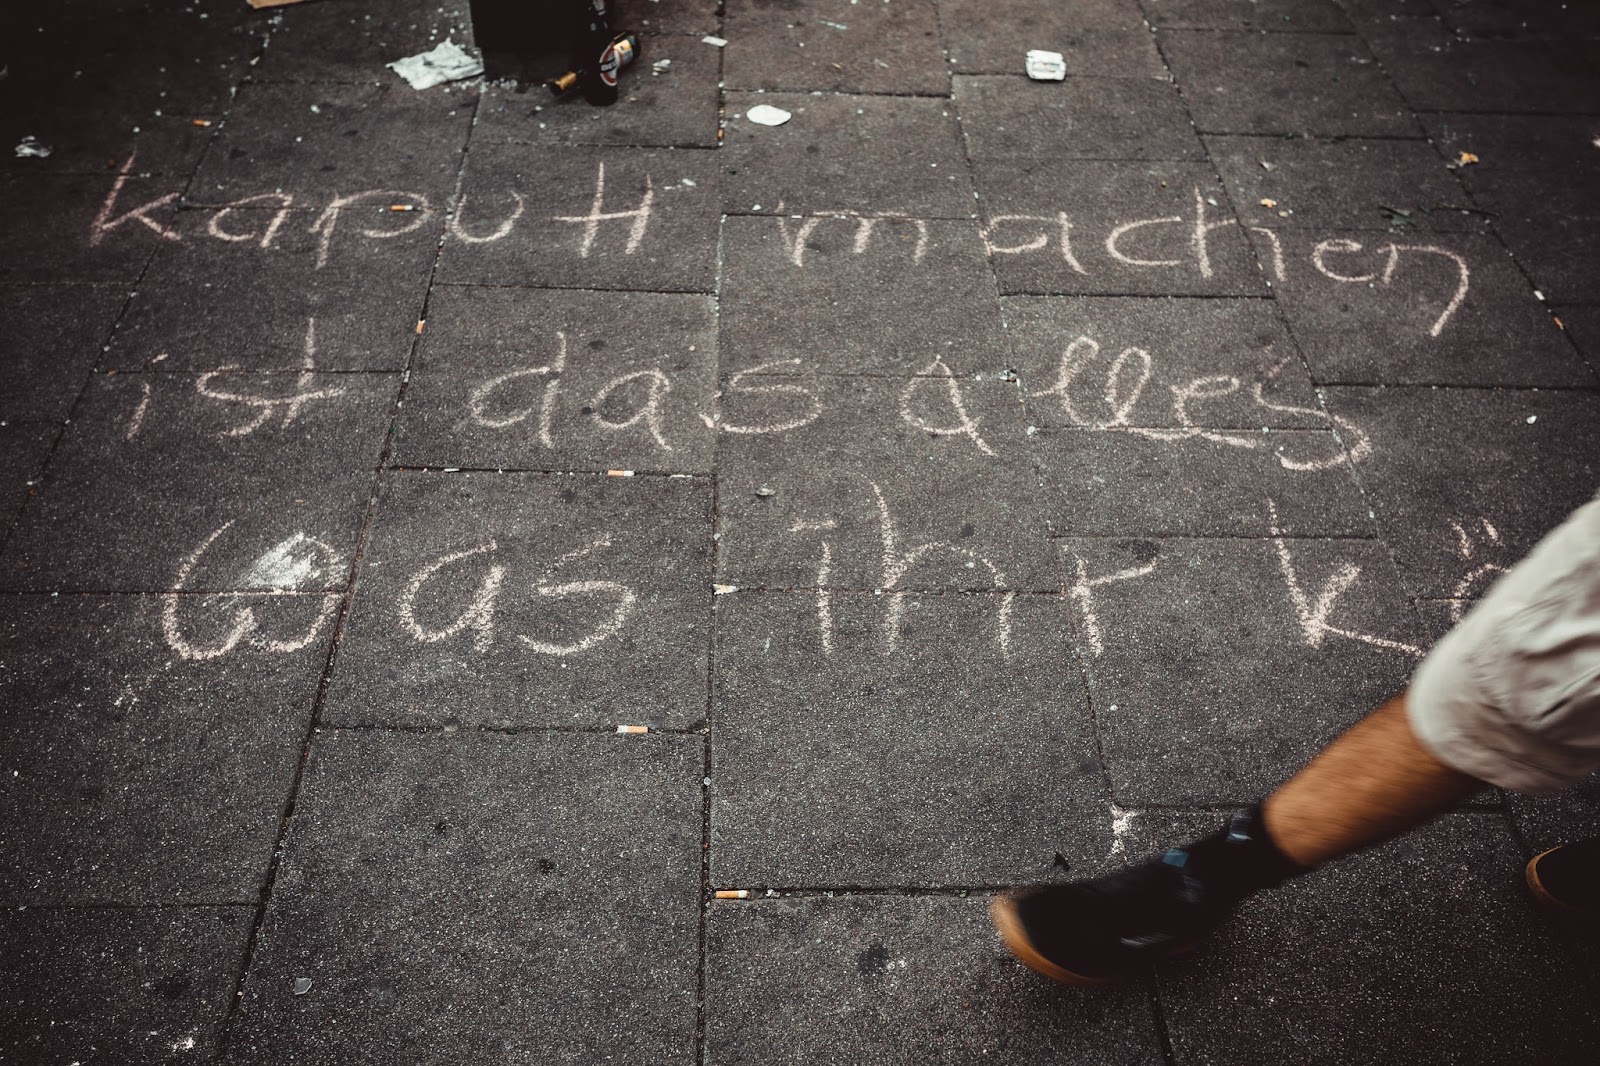 kaputt machen
ist das alles
was ihr kö